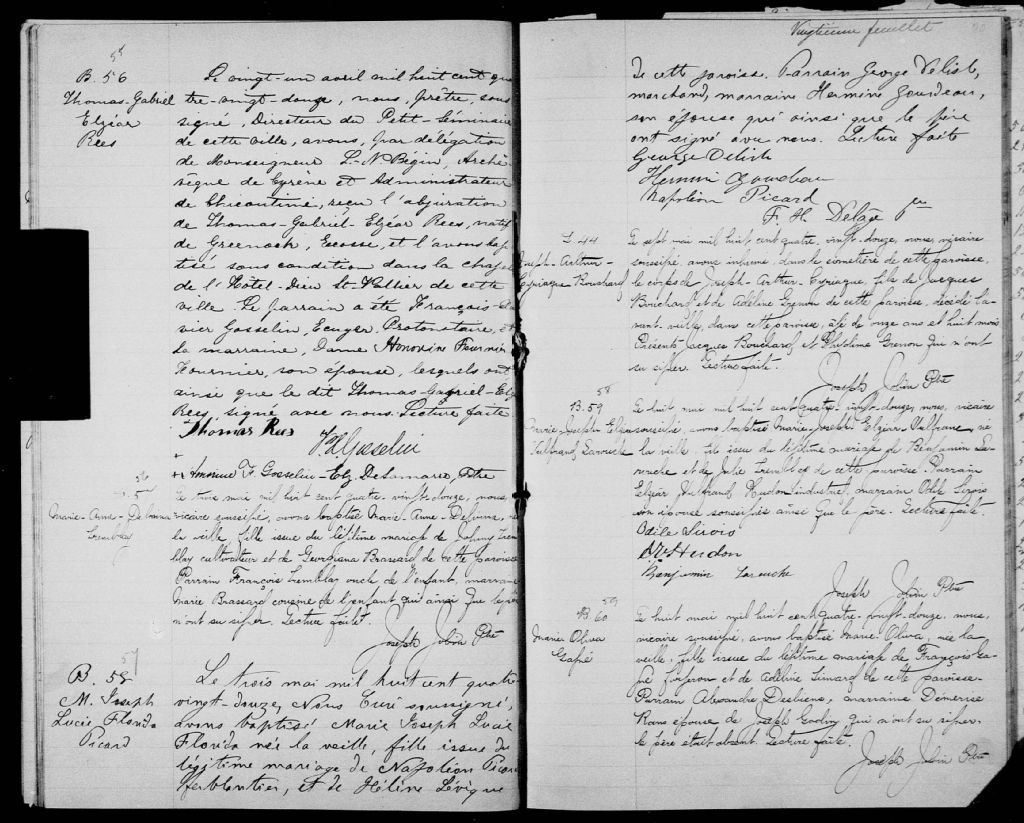 55
B. 56
Thomas-Gabriel
Elzéar
Rees
Le vingt-un avril mil huit cent qua
tre-vingt-douze, nous, prêtre, sous
signé, Directeur du Petit-Séminaire
de cette ville, avons, par délégation
de Monseigneur L.-N. Bégin, Arche
vêque de Cyrène et Administrateur
de Chicoutimi, reçu l'abjuration
de Thomas-Gabriel-Elzéar Rees, natif
de Greenock, Ecosse, et l'avons bap
tisé sous condition dans la chapel
de l'Hôtel-Dieu St-Vallier de cette
ville. Le parrain a été François-Xa
vier Gosselin, Ecuyer, Protonotaire, et
la marraine, Dame Honorine Fournier
Fournier, son épouse, lesquels ont
ainsi que le dit Thomas-Gabriel-Elz
Rees, signé avec nous. Lecture faite
Thomas Rees
F. X. Gosselin
F. Gosselin - Elz. DeLamarre, Ptre
56
Marie-Anne-Delvina
Tremblay
Le trois mai mil huit cent quatre-vingt-douze, nous,
vicaire soussigné, avons baptisé Marie-Anne-Delvina, née
la veille, fille issue du légitime mariage de Johnny Trem
blay cultivateur et de Georgiana Brassard de cette paroisse
Parrain François Tremblay oncle de l'enfant, marraine
Marie Brassard cousine de l'enfant qui ainsi que le père
n'ont su signer. Lecture faite.
Joseph Jobin Ptre
57
B. 58
M. Joseph
Lucie Florida
Picard
Le trois mai mil huit cent quatre
vingt-douze, Nous Curé soussigné,
avons baptisé Marie Joseph Lucie
Florida née la veille, fille issue du
légitime mariage de Napoléon Picard
ferblantier, et de Hélène Lévêque
Vingtième feuillet
20
de cette paroisse. Parrain George Delisle,
marchand, marraine Hermine Gourdeau,
son épouse qui ainsi que le père
ont signé avec nous. Lecture faite
George Delisle
Hermine Gourdeau
Napoléon Picard
F. H. Delâge Ptre
S. 44
Joseph-Arthur-
Cyriaque Bouchard
Le sept mai mil huit cent quatre-vingt-douze, nous, vicaire
soussigné, avons inhumé, dans le cimetière de cette paroisse,
le corps de Joseph-Arthur-Cyriaque, fils de Jacques
Bouchard et de Adéline Grenon de cette paroisse, décédé l'a-
vant-veille, dans cette paroisse, âgé de onze ans et huit mois
Présents Jacques Bouchard et Grenon qui n'ont
su signer. Lecture faite.
Joseph Jobin Ptre
58
B. 59
Marie-Joseph Elzéar
Vulfranc Larouche
Le huit mai mil huit cent quatre-vingt-douze, nous, vicaire
soussigné, avons baptisé Marie-Joseph Elzéar Vulfranc, né
la veille, fils issu du légitime mariage de Benjamin La-
rouche et de Julie Tremblay de cette paroisse. Parrain
Elzéar Vulfranc Hudon industriel, marraine Odile Sirois
son épouse soussignés ainsi que le père. Lecture faite.
Odile Sirois
Hudon
Benjamin Larouche
Joseph Jobin Ptre
59
B. 60
Marie Oliva
Gagné
Le huit mai mil huit cent quatre-vingt-douze, nous,
vicaire soussigné, avons baptisé Marie-Oliva, née la
veille, fille issue du légitime mariage de François Ga-
gné forgeron et de Adéline Simard de cette paroisse
Parrain Alexandre Desbiens, marraine Démerise
épouse de Joseph Godin qui n'ont su signer.
le père était absent. Lecture faite.
Joseph Jobin Ptre